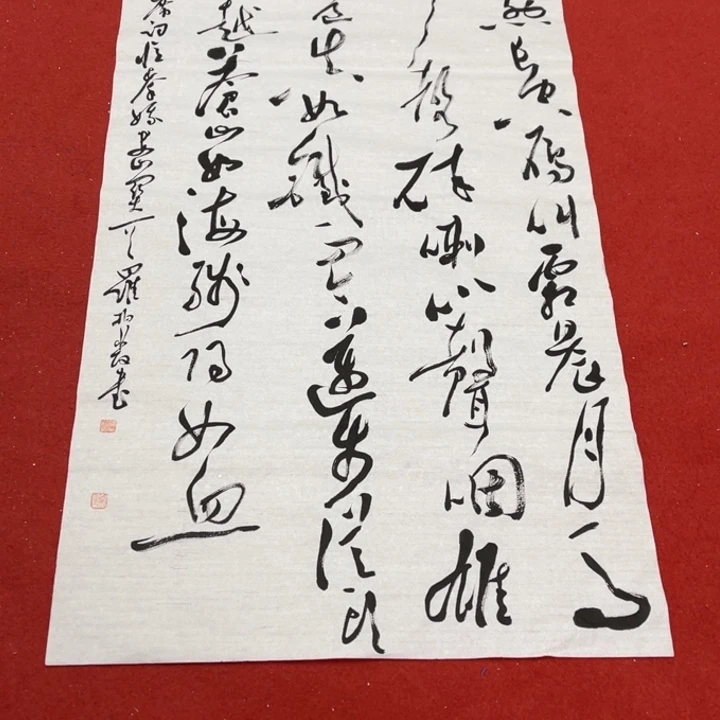 烈長空雁叫霜晨月馬
聲碎喇叭聲咽雄
真如鐵而今邁步從頭
越蒼山如海殘陽如血
席詞憶秦娥婁山關 羅書